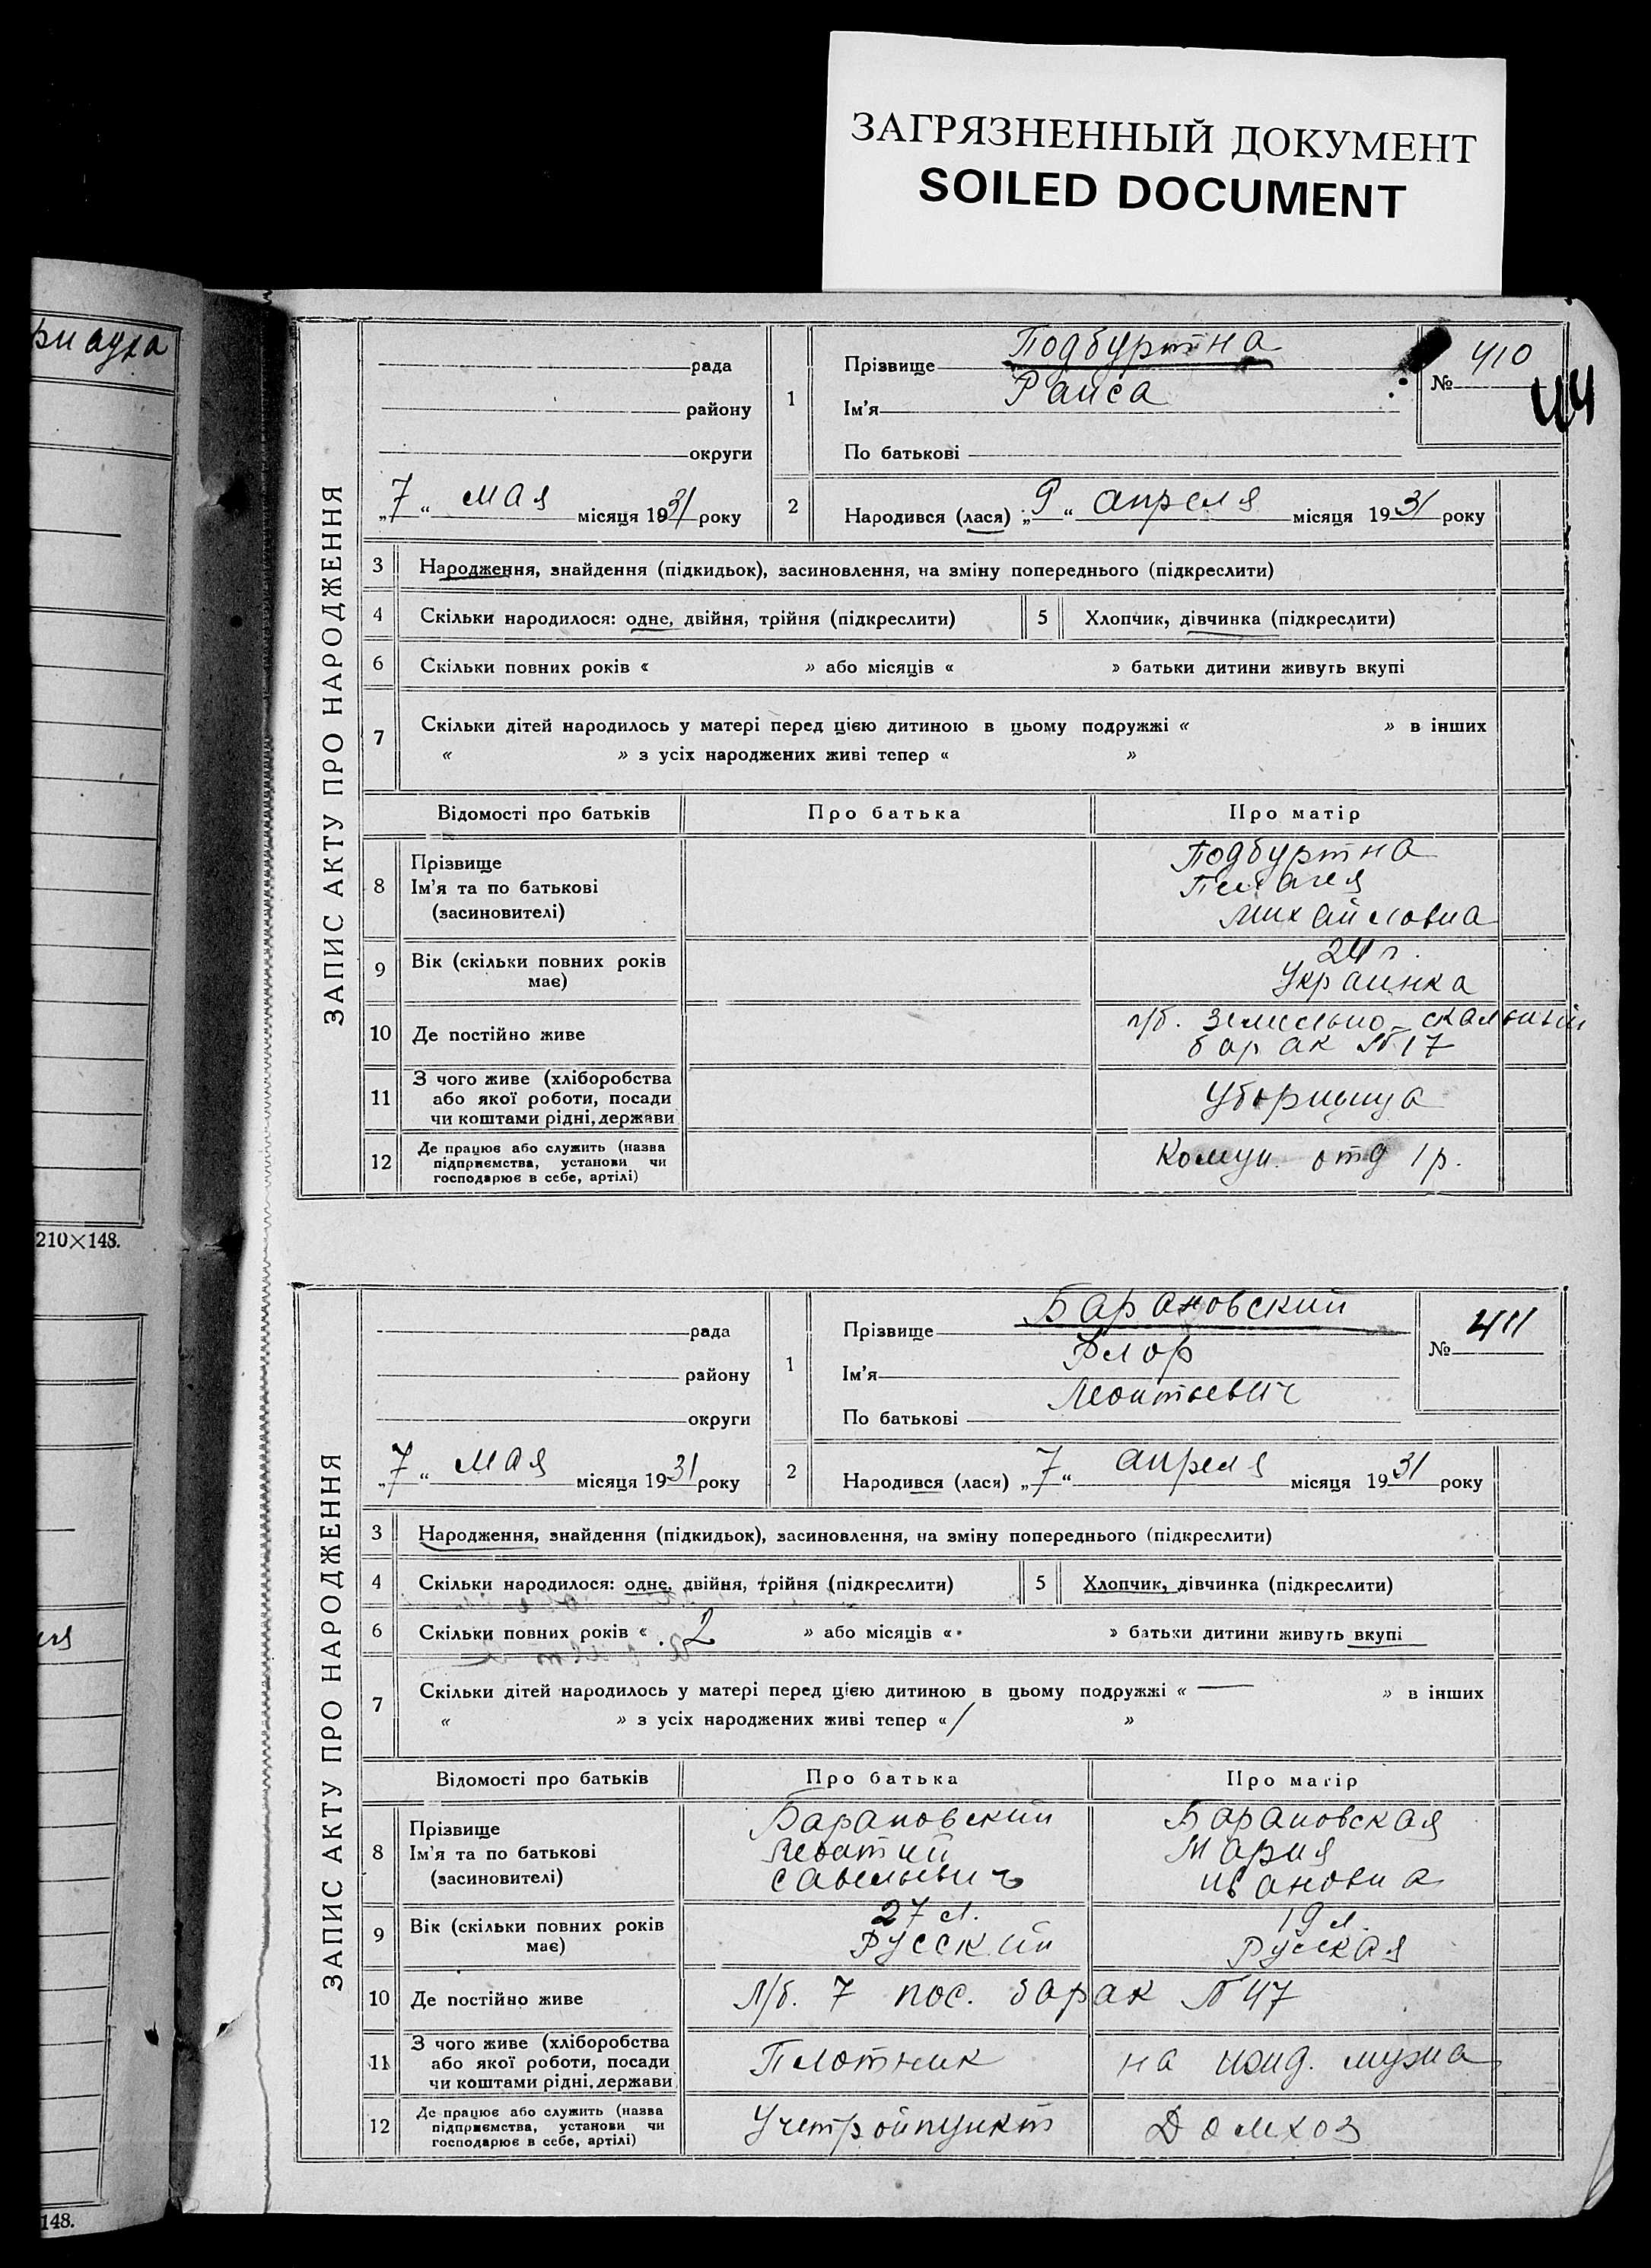 ЗАГРЯЗНЕННЫЙ ДОКУМЕНТ
SOILED DOCUMENT
210×148.
148.
ЗАПИС АКТУ ПРО НАРОДЖЕННЯ
рада
району
округи
„7“ мая місяця 1931 року
1
Прізвище Подбуртна
Ім'я Раиса
По батькові
№ 410
44
2
Народився (лася) „9“ апреля місяця 1931 року
3 Народження, знайдення (підкидьок), засиновлення, на зміну попереднього (підкреслити)
4 Скільки народилося: одне, двійня, трійня (підкреслити) 5 Хлопчик, дівчинка (підкреслити)
6 Скільки повних років « » або місяців « » батьки дитини живуть вкупі
7 Скільки дітей народилось у матері перед цією дитиною в цьому подружжі « » в інших
« » з усіх народжених живі тепер « »
Відомості про батьків Про батька Про матір
8 Прізвище
Ім'я та по батькові
(засиновителі)
Подбуртна
Пелагея
Михайловна
9 Вік (скільки повних років
має)
24 г.
Украинка
10 Де постійно живе
п/б. Земельно-скальный
барак № 17
11 З чого живе (хліборобства
або якої роботи, посади
чи коштами рідні, держави
Уборщица
12 Де працює або служить (назва
підприємства, установи чи
господарює в себе, артілі)
Комун. отд 1 р.
ЗАПИС АКТУ ПРО НАРОДЖЕННЯ
рада
району
округи
„7“ мая місяця 1931 року
1
Прізвище Барановский
Ім'я Флор
По батькові Леонтьевич
№ 411
2
Народився (лася) „7“ апреля місяця 1931 року
3 Народження, знайдення (підкидьок), засиновлення, на зміну попереднього (підкреслити)
4 Скільки народилося: одне, двійня, трійня (підкреслити) 5 Хлопчик, дівчинка (підкреслити)
6 Скільки повних років « 2 » або місяців « » батьки дитини живуть вкупі
7 Скільки дітей народилось у матері перед цією дитиною в цьому подружжі « — » в інших
« » з усіх народжених живі тепер « 1 »
Відомості про батьків Про батька Про матір
8 Прізвище
Ім'я та по батькові
(засиновителі)
Барановский
Леонтий
Савельевич
Барановская
Мария
Ивановна
9 Вік (скільки повних років
має)
27 л.
Русский
19 л.
Русская
10 Де постійно живе
п/б. 7 пос. барак № 47
11 З чого живе (хліборобства
або якої роботи, посади
чи коштами рідні, держави
Плотник
на ижд. мужа
12 Де працює або служить (назва
підприємства, установи чи
господарює в себе, артілі)
Домхоз